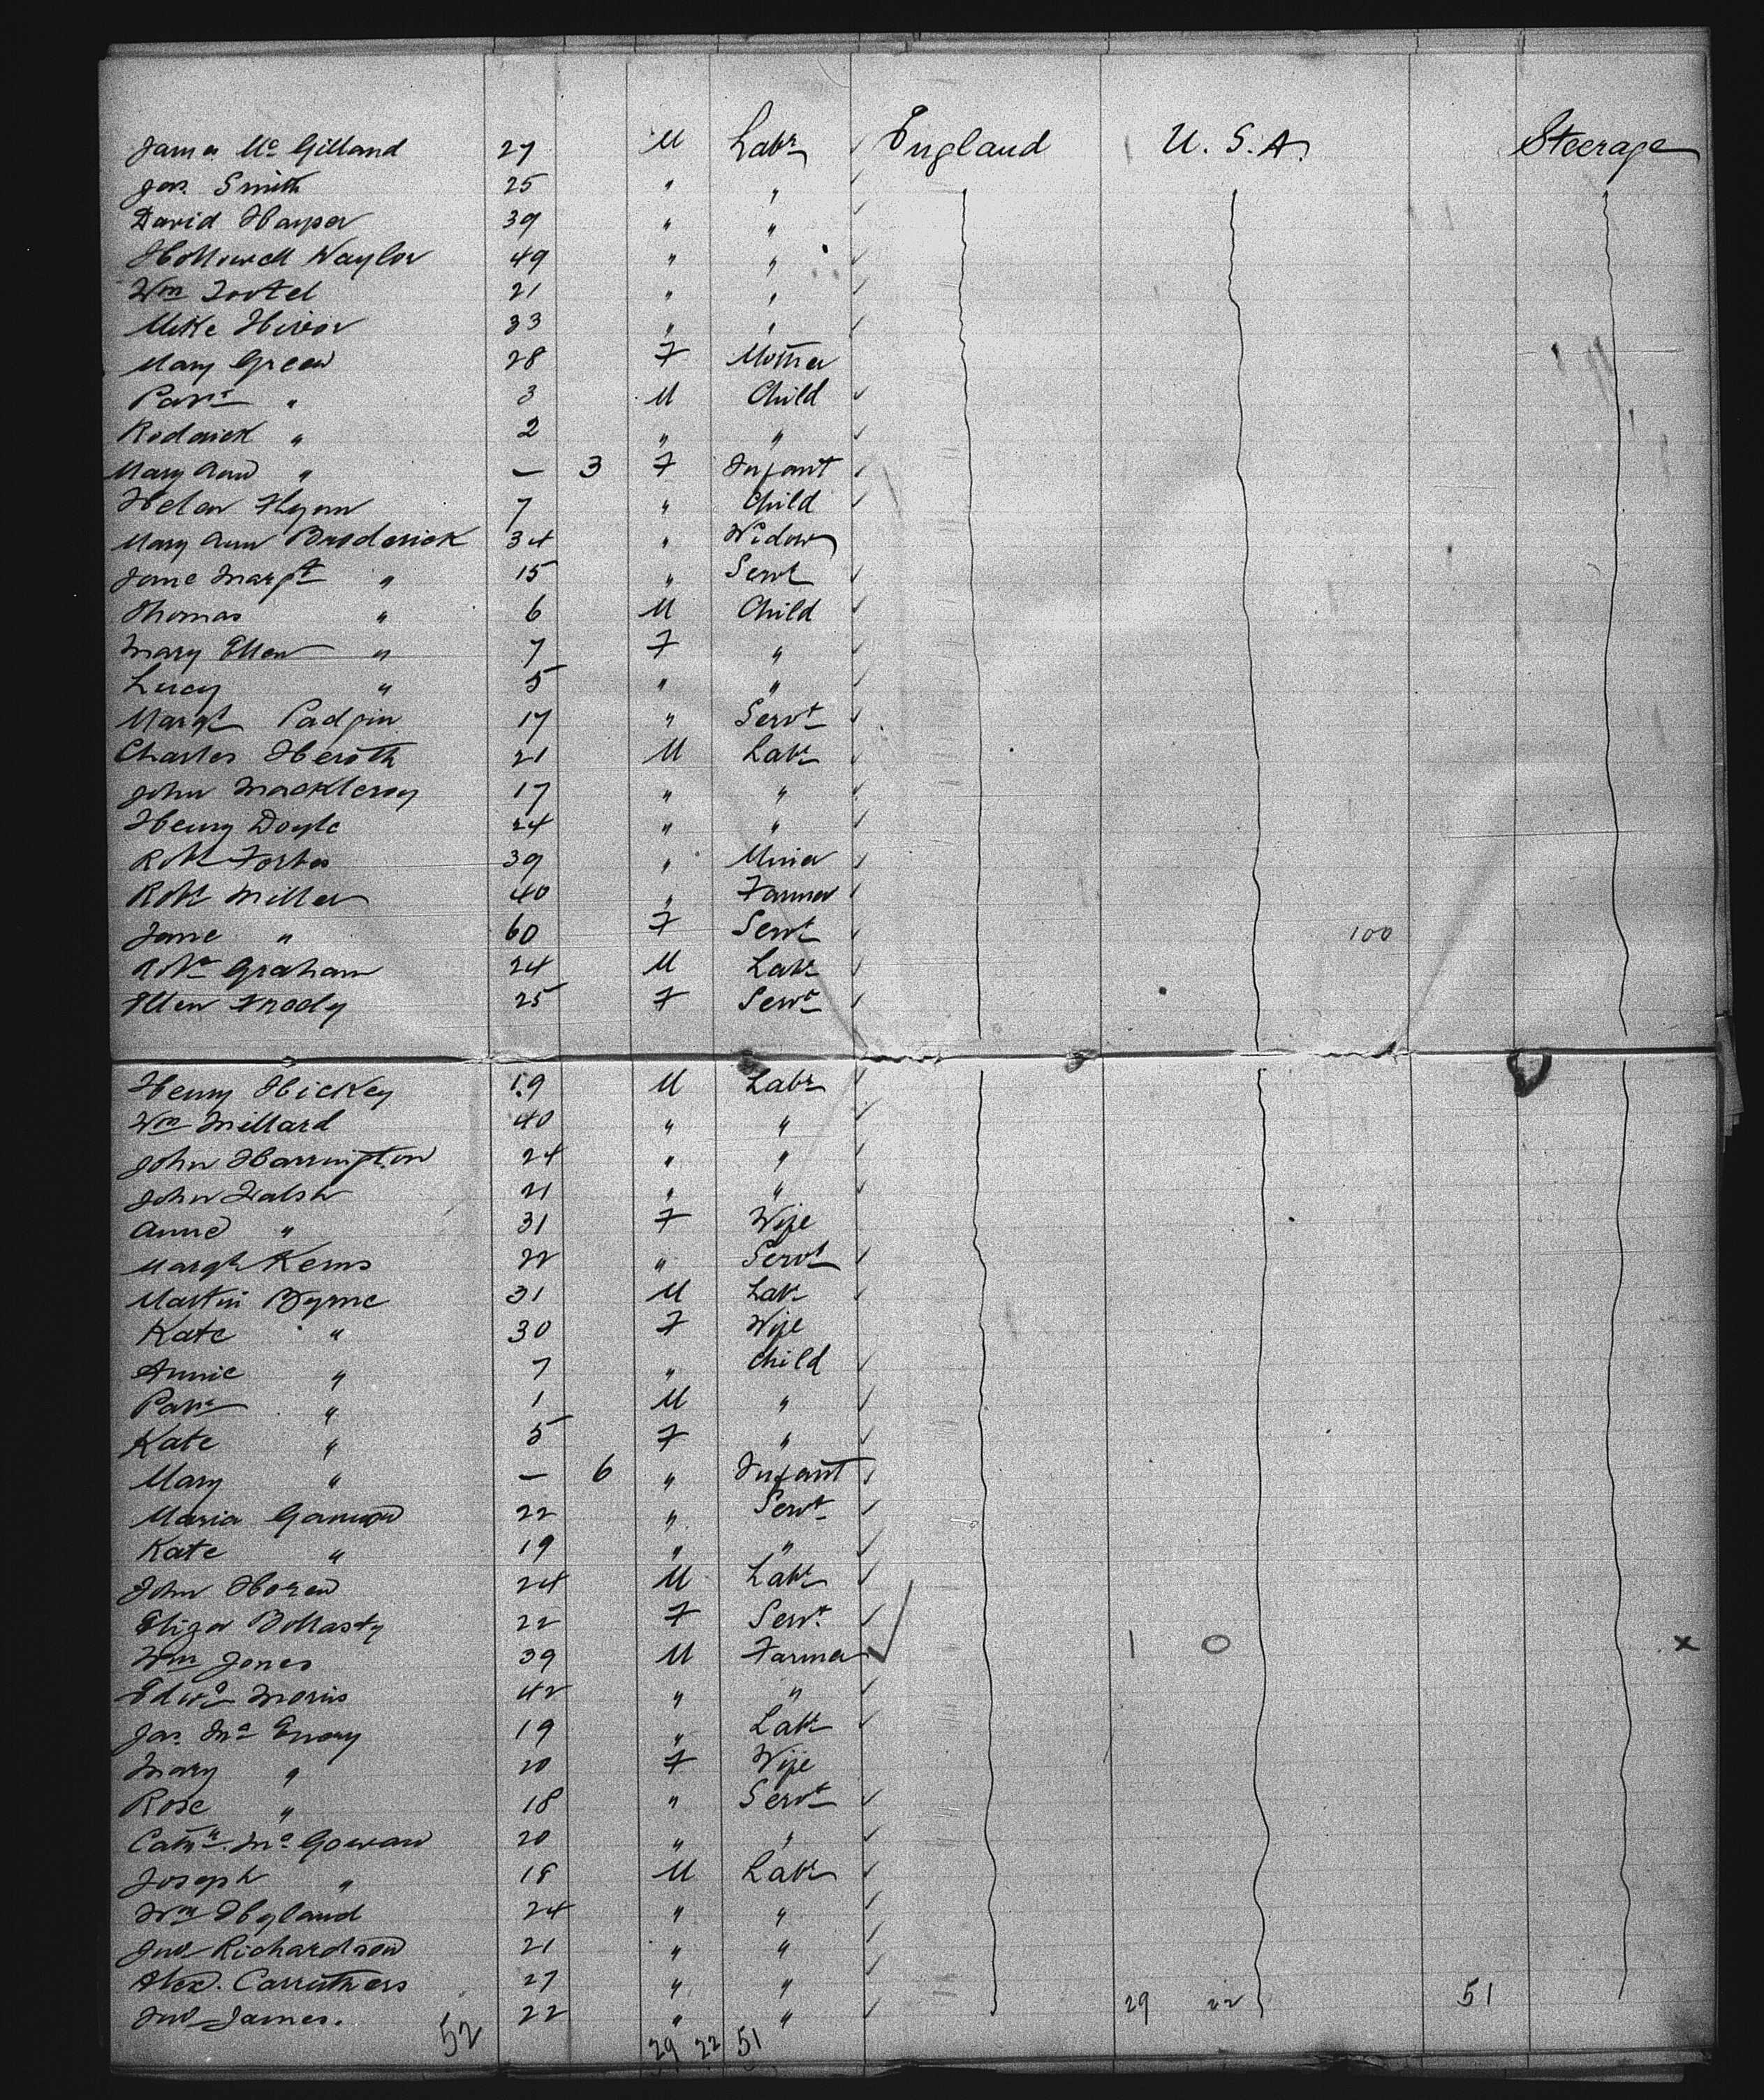 James Mc Gilland 27 M Labr England U. S. A. Steerage
Jas. Smith 25 " "
David Harper 39 " "
Hollowell Naylor 49 " "
Wm Tootel 21 " "
Mike Hivor 33 " "
Mary Green 28 F Mother
Patk " 3 M Child
Roderick " 2 " "
Mary Ann " — 3 F Infant
Helen Flynn 7 " Child
Mary Ann Broderick 34 " Widow
Jane Margt " 15 " Servt
Thomas " 6 M Child
Mary Ellen " 7 F "
Lucy " 5 " "
Margt Padgin 17 " Servt
Charles Heroth 21 M Labr
John Mackleroy 17 " "
Henry Doyle 24 " "
Robt Forbes 39 " Miner
Robt Miller 40 " Farmer
Jane " 60 F Servt 100
Robt Graham 24 M Labr
Ellen 25 F Servt
Henry Hickey 19 M Labr
Wm Millard 40 " "
John Harrington 24 " "
John Walsh 21 " "
Anne " 31 F Wife
Margt Kerns 22 " Servt
Martin Byrne 31 M Labr
Kate " 30 F Wife
Annie " 7 " Child
Patk " 1 M "
Kate " 5 F "
Mary " — 6 " Infant
Maria Gannon 22 " Servt
Kate " 19 " "
John Horen 24 M Labr
Eliza 22 F Servt
Wm Jones 39 M Farmer 1 0 x
Edwd Morris 42 " "
Jas. Mc Enroy 19 " Labr
Mary " 20 F Wife
Rose " 18 " Servt
Cathn Mc Gowan 20 " "
Joseph " 18 M Labr
Wm Hyland 24 " "
Jno Richardson 21 " "
Alex. Carruthers 27 " "
Jno James. 22 " " 29 22 51
52 29 22 51